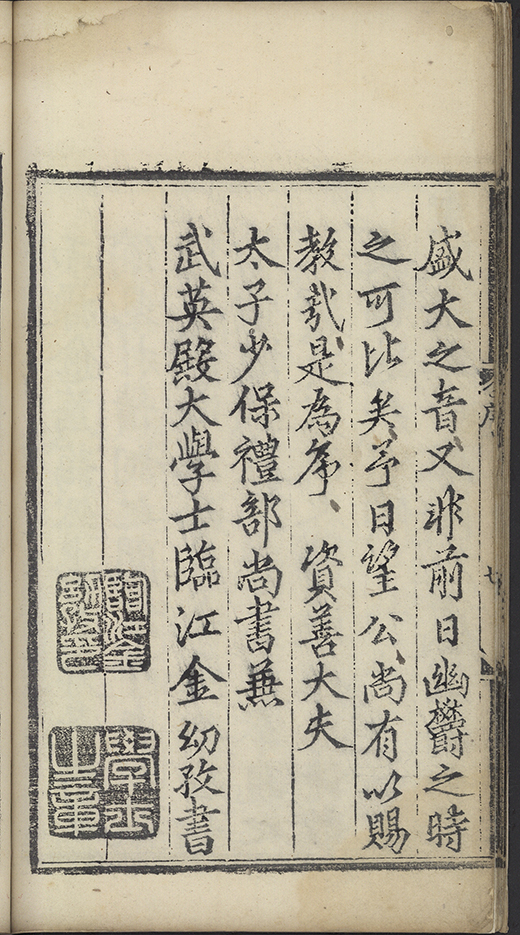 盛大之音、又非前日幽鬱之時
之可比矣、予日望公、尚有以賜
教哉、是為序、資善大夫
太子少保禮部尚書兼
武英殿大學士臨江金幼孜書
學士之章